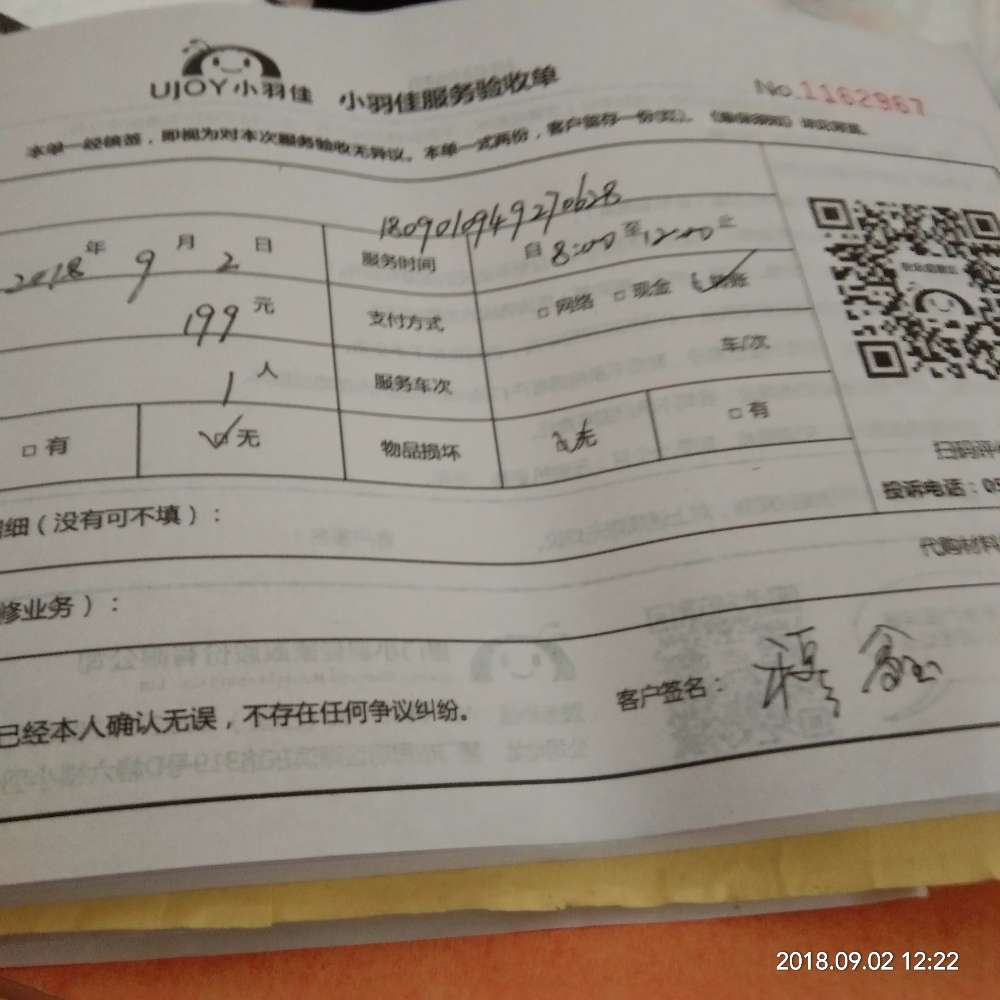 UJOY小羽佳 小羽佳服务验收单 No.1162967
本单一经确签，即视为对本次服务验收无异议。本单一式两份，客户留存一份
180901094927062８
2018年9月2日 服务时间 自8:00至12:00止
199元 支付方式 □网络 □现金 转账
1人 服务车次 车/次
□有 ☑无 物品损坏 无 □有
扫码评
投诉电话：05
细（没有可不填）：
代购材料
修业务）：
已经本人确认无误，不存在任何争议纠纷。
客户签名：
2018.09.02 12:22